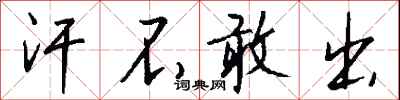 汗不敢出
词典网